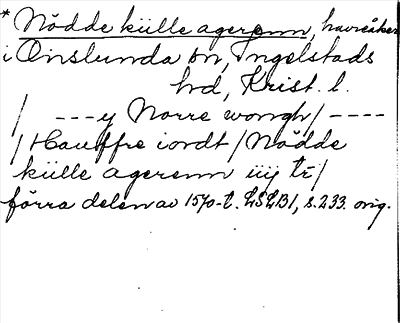 * Nödde külle agerenn, havreåker
i Önslunda sn, Ingelstads
hd, Krist. l.
/ ---y Norre wongh/ ----
/ Hauffre iordt / Nödde
külle agerenn iiij tr̄/
förra delen av 1570-t. LSLB1, s. 233. orig.